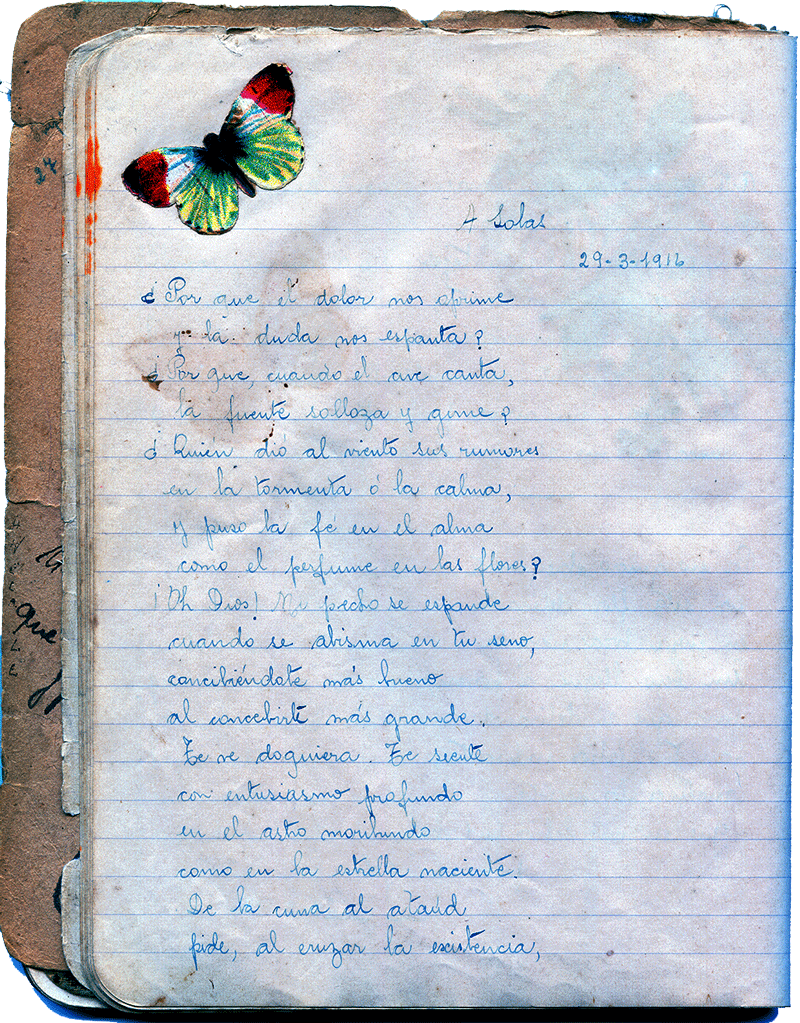 24
A Solas
29-3-1916
¿Por que el dolor nos oprime
y la duda nos espanta?
¿Por que, cuando el ave canta,
la fuente solloza y gime?
¿Quién dió al viento sus rumores
en la tormenta ó la calma,
y puso la fé en el alma
como el perfume en las flores?
¡Oh Dios! Mi pecho se espande
cuando se abisma en tu seno,
concibiéndote más bueno
al concebirte más grande.
Te ve doquiera. Te siente
con entusiasmo profundo
en el astro moribundo
como en la estrella naciente.
De la cuna al ataúd
pide, al cruzar la existencia,
que